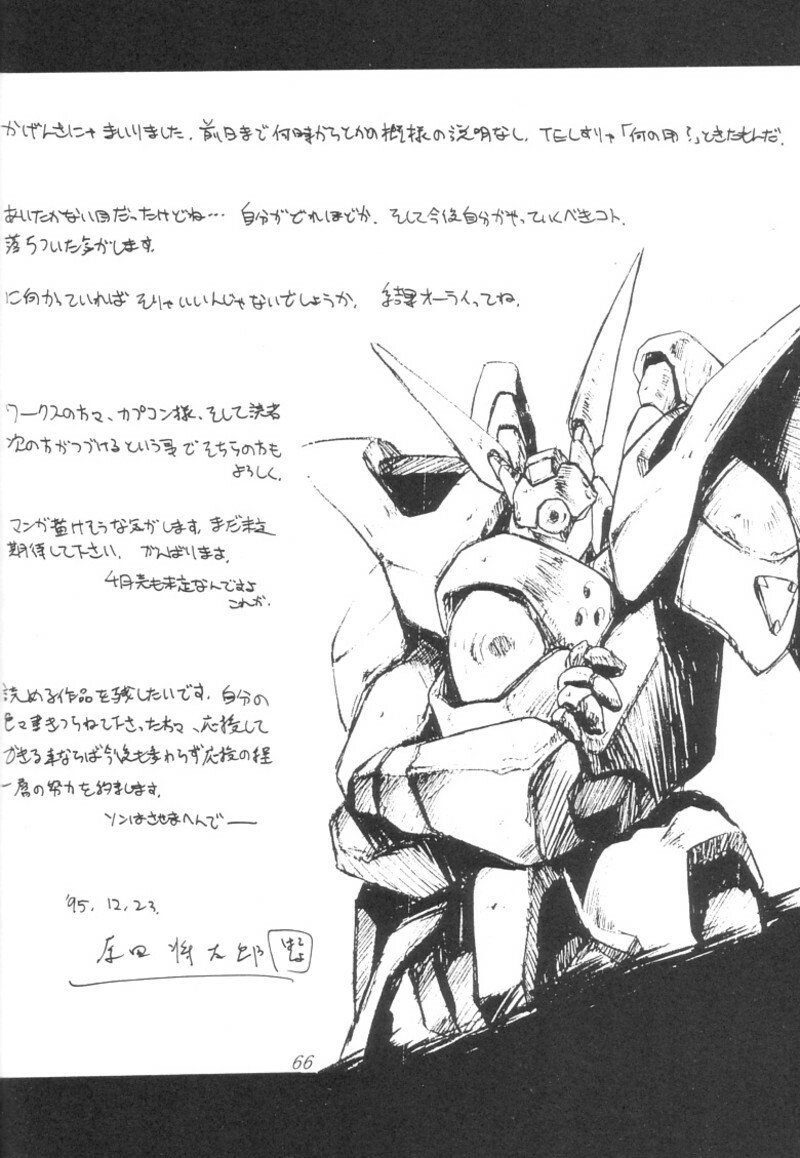 かげんさにゃまいりました. 前日まで何時からとかの模様の説明なし. TELすりゃ「何の用?」ときたもんだ.
あいたかない目だったけどね… 自分がどれほどか. そして今後自分がやっていくべきコト.
落ちついた気がします.
に向かっていれば そりゃいいんじゃないでしょうか. 結果オーライってね.
ワークスの方々、カプコン様、そして読者
次の方がつづけるという事でそちらの方も
よろしく.
マンガ書けそうな気がします. まだ未定
期待して下さい. がんばります.
4月売も未定なんですよ
これが.
読める作品を残したいです. 自分の
色々書きつらねて下さった方々、応援して
できる事ならば今後も変わらず応援の程
一層の努力を約束します.
ソンはさせまへんでー
'95. 12. 23.
原田 将太郎
66